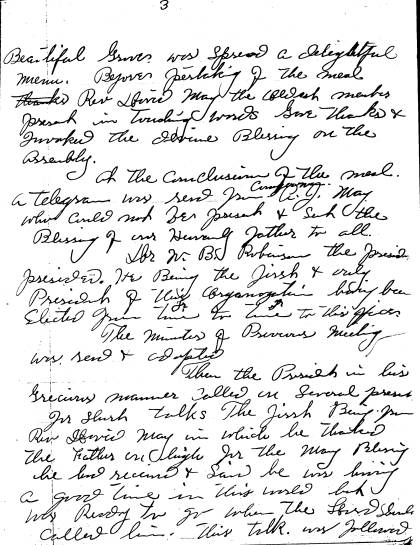 3
Beautiful Groves was spread a delightful
menu. Before partaking of the meal
Rev David May the oldest member
present in touching words Gave thanks &
Invoked the Divine Blessing on the
assembly.
At the conclusion of the meal.
a telegram was read from Congressman A.J. May
who could not be present & sent the
Blessing of our Heavenly Father to all.
Dr W. B. Robinson the President
presided. He Being the first & only
President of this Organization having been
Elected from time to time to this office
The Minutes of Previous Meeting
was read & adopted
Then the President in his
Gracious manner called on Several present
for short talks The first Being from
Rev David May in which he thanked
the Father on high for the Many Blessing
he had received & Said he was having
a good time in this world but
was Ready to go when the Lord
called him. This talk was followed